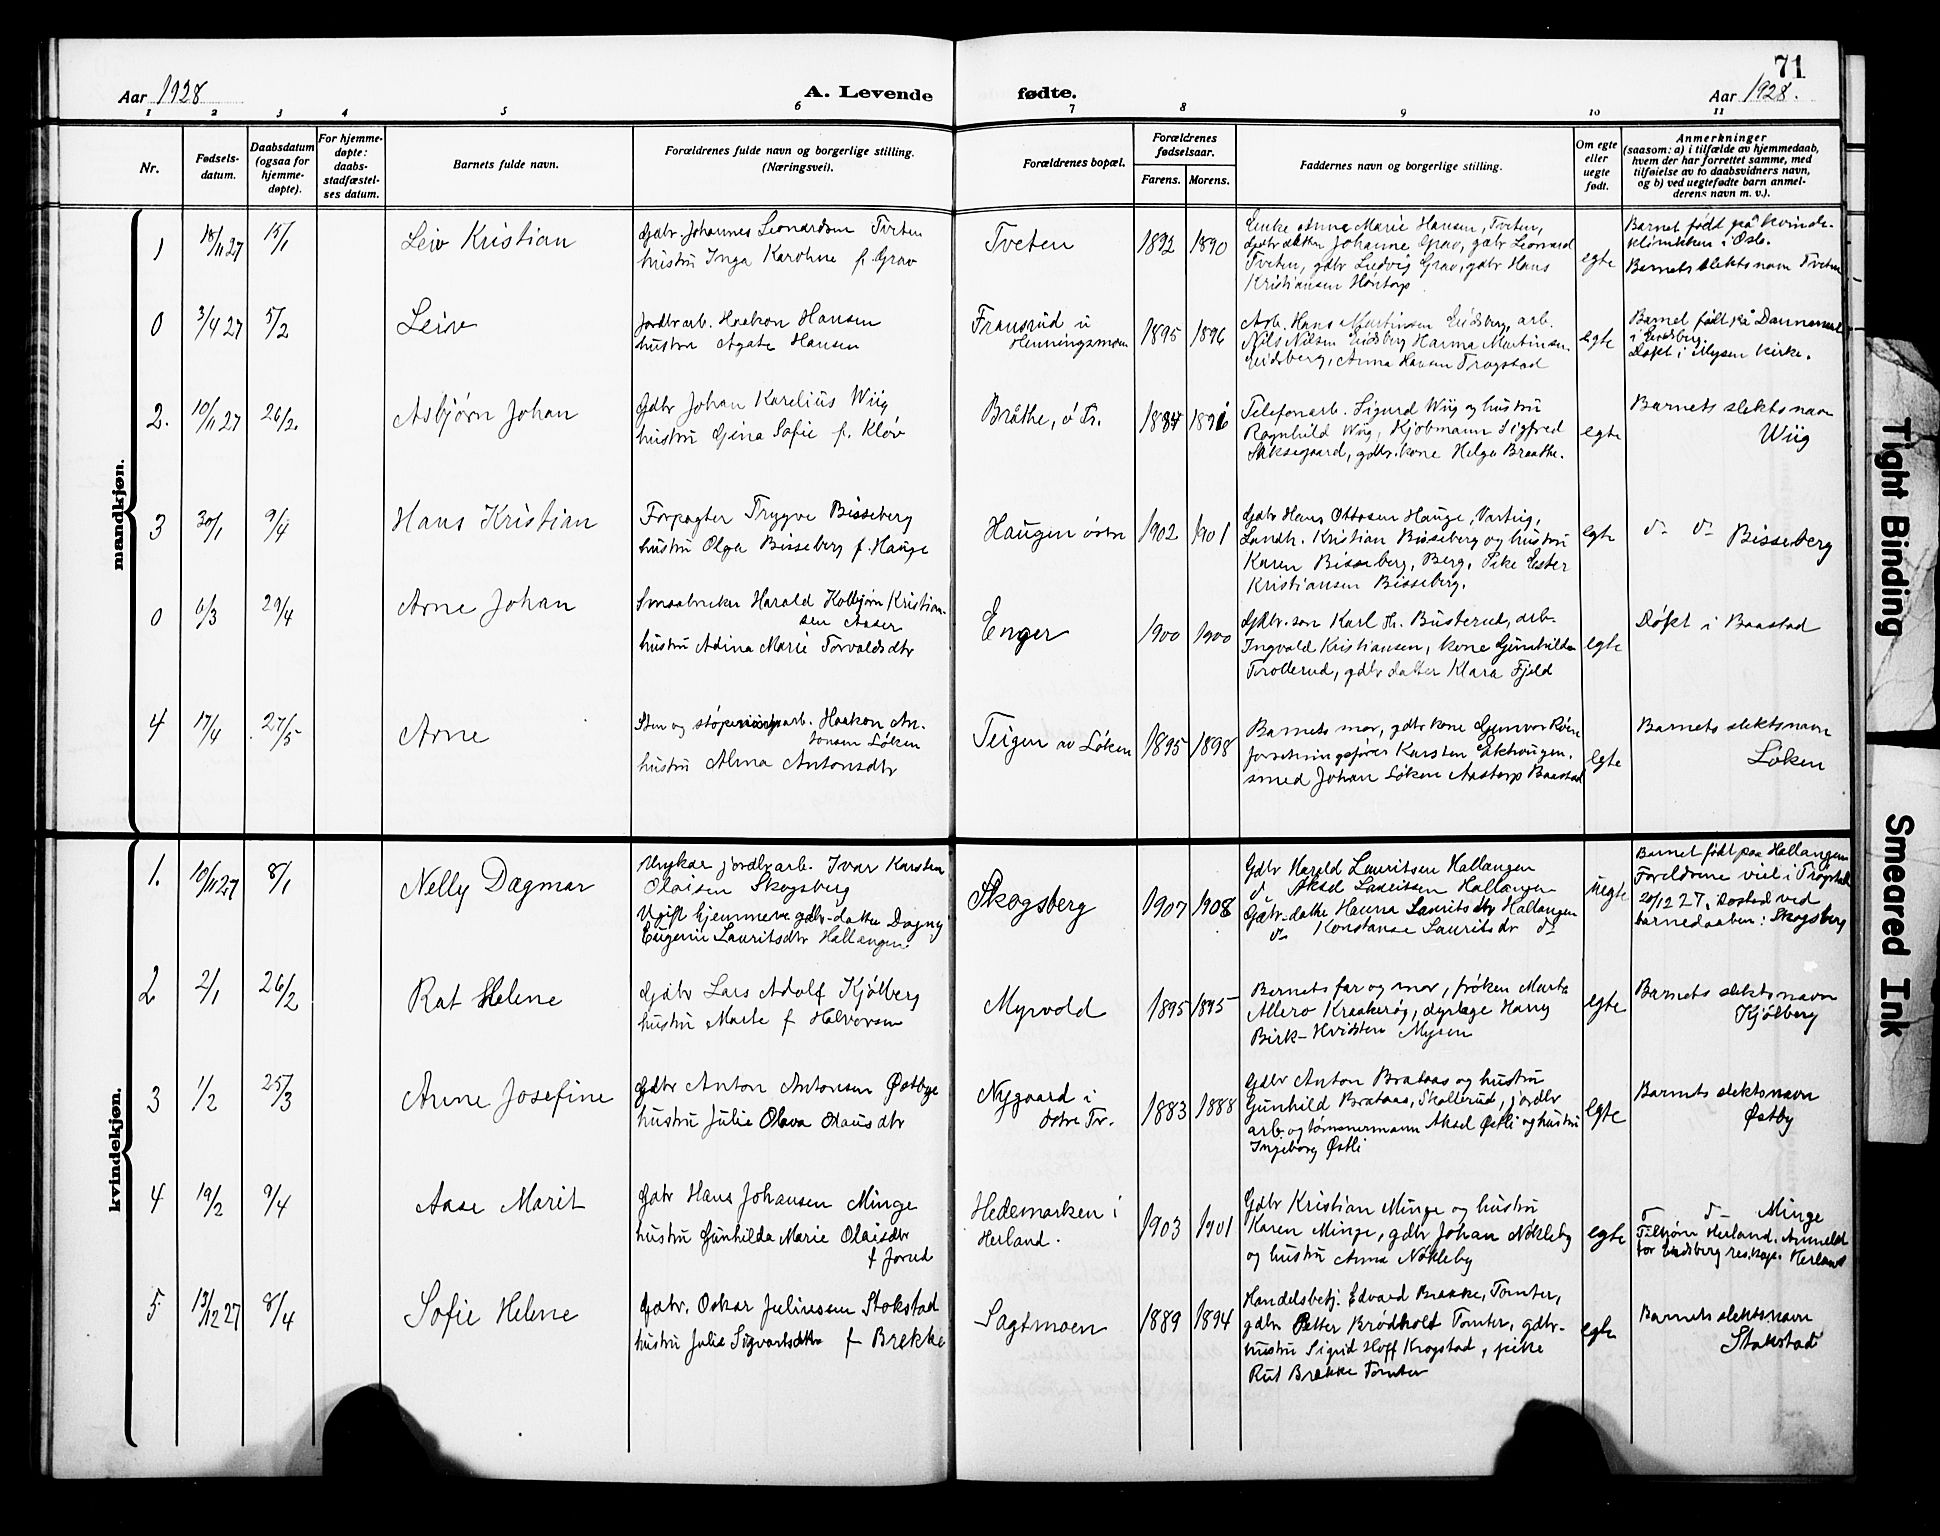 71
Aar 1928
A. Levende
fødte.
Aar 1928.
1 2 3 4 5 6 7 8 9 10 11
Nr.
Fødsels-
datum.
Daabsdatum
(ogsaa for
hjemme-
døpte).
For hjemme-
døpte:
daabs-
stadfæstel-
ses datum.
Barnets fulde navn.
Forældrenes fulde navn og borgerlige stilling.
(Næringsvei).
Forældrenes bopæl.
Forældrenes
fødselsaar.
Farens. Morens.
Faddernes navn og borgerlige stilling.
Om egte
eller
uegte
født.
Anmerkninger
(saasom: a) i tilfælde av hjemmedaab,
hvem der har forrettet samme, med
tilføielse av to daabsvidners navn,
og b) ved uegtefødte barn anmel-
derens navn m. v.).
mandkjøn.
1
18/11 27
15/1
Leiv Kristian
Gdbr. Johannes Leonardsen Tveten
hustru Inga Karoline f. Grav
Tveten
1892 1890
Enke Anne Marie Hansen, Tveten,
Gdbr datter Johanne Grav, gdbr Leonard
Tveten, gdbr Ludvig Grav, gdbr Hans
Kristiansen Hontorp
egte
Barnet født på Kvinde-
klinikken i Oslo.
Barnets slektsnavn Tveten
0
3/4 27
5/2
Leiv
Jordbrarb. Haakon Hansen
hustru Agate Hansen
Fransrud u
Henningsmoen
1895 1896
Arb. Hans Martinsen Eidsberg, arb.
Nils Nilsen Eidsberg Harma Martinsen
Eidsberg, Anna Hansen Trøgstad
egte
Barnet født på Dannemark
i Eidsberg.
Døpt i Mysen kirke.
2.
10/11 27
26/2.
Asbjørn Johan
Gdbr Johan Karelius Wiig
hustru Gina Sofie f. Kløv
Bråthe, ø Tr.
1887 1891
Telefonarb. Sigurd Wiig og hustru
Ragnhild Wiig, Kjøbmann Sigfred
gdbr. kone Helga Braathe.
egte
Barnets slektsnavn
Wiig
3
30/1
9/4
Hans Kristian
Forpagter Trygve Bisseberg
hustru Olga Bisseberg f. Hauge
Haugen østre
1902 1901
Gdbr Hans Ottosen Hauge, Vartug,
Landh. Kristian Bisseberg og hustru
Karen Bisseberg, Berg, Pike Ester
Kristiansen Bisseberg.
egte
d- d- Bisseberg
0
6/3
29/4
Arne Johan
Smaabruker Harald Kolbjørn Kristian-
sen Aaser
hustru Adina Marie Torvaldsdtr
Enger
1900 1900
Gdbr. søn Karl Th. Busterud, arb.
Ingvald Kristiansen, kone Gunhilda
Trollerud, gdbr datter Klara Fjeld
egte
Døpt i Baastad
4
17/4
27/5
Arne
Sten og arb. Haakon An-
tonsen Løken
hustru Alma Antonsdtr
Teigen av Løken
1895 1898
Barnets mor, gdbr kone Gunvor
forretningsfører Karsten
smed Johan Løken Aastorp Baastad
egte
Barnets slektsnavn
Løken
kvindekjøn.
1.
10/11 27
8/1
Nelly Dagmar
Ungkar jordbrarb. Ivar Karsten
Olaisen Skogsberg
Ugift hjemmev gdbr-datter Dagny
Eugenie Lauritsdtr Hallangen
Skogsberg
1907 1908
Gdbr Harald Lauritsen Hallangen
d. Aksel Lauritsen Hallangen
Gdbr-datter Hanna Lauritsdtr Hallangen
do Konstanse Lauritsdr do
uegte
Barnet født paa Hallangen
Foreldrene viet i Trøgstad
20/12 27, bosted ved
barnedaaben: Skogsberg
2
2/1
26/2
Rat Helene
Gdbr Lars Adolf Kjølberg
hustru Marte f Halvorsen
Myrvold
1895 1895
Barnets far og mor, frøken Marta
Allero Kraakerøy, dyrlæge Harry
Birk-Hvidsten Mysen
egte
Barnets slektsnavn
Kjølberg
3
1/2
25/3
Anne Josefine
Gdbr Anton Antonsen Østbye
hustru Julie Olava Olausdtr
Nygaard i
østre Tr.
1883 1888
Gdbr Anton Brataas og hustru
Gunhild Brataas, Skallerud, jordbr
arb. og tømmermann Aksel Østli og hustru
Ingeborg Østli
egte
Barnets slektsnavn
Østby
4
19/2
9/4
Aase Marit
Gdbr Hans Johansen Minge
hustru Gunhilda Marie Olaisdtr
f Jorud
Hedemarken i
Herland.
1903 1901
Gdbr Kristian Minge og hustru
Karen Minge, gdbr Johan Nøkleby
og hustru Anna Nøkleby
egte
d- Minge
Tilhører Herland. Anmeldt
for Eidsberg res.kap. Herland
5
13/12 27
8/4
Sofie Helene
Gdbr. Oskar Julinssen Stokstad
hustru Julie Sigvartsdtr f Brekke
Sagtmoen
1889 1894
Handelsbetj. Edvard Brekke, Tomter,
gdbr Petter Brødholt Tomter, gdbr-
hustru Sigrid Hoff Krogstad, pike
Rut Brekke Tomter
egte
Barnets slektsnavn
Stokstad
Tight Binding
Smeared Ink